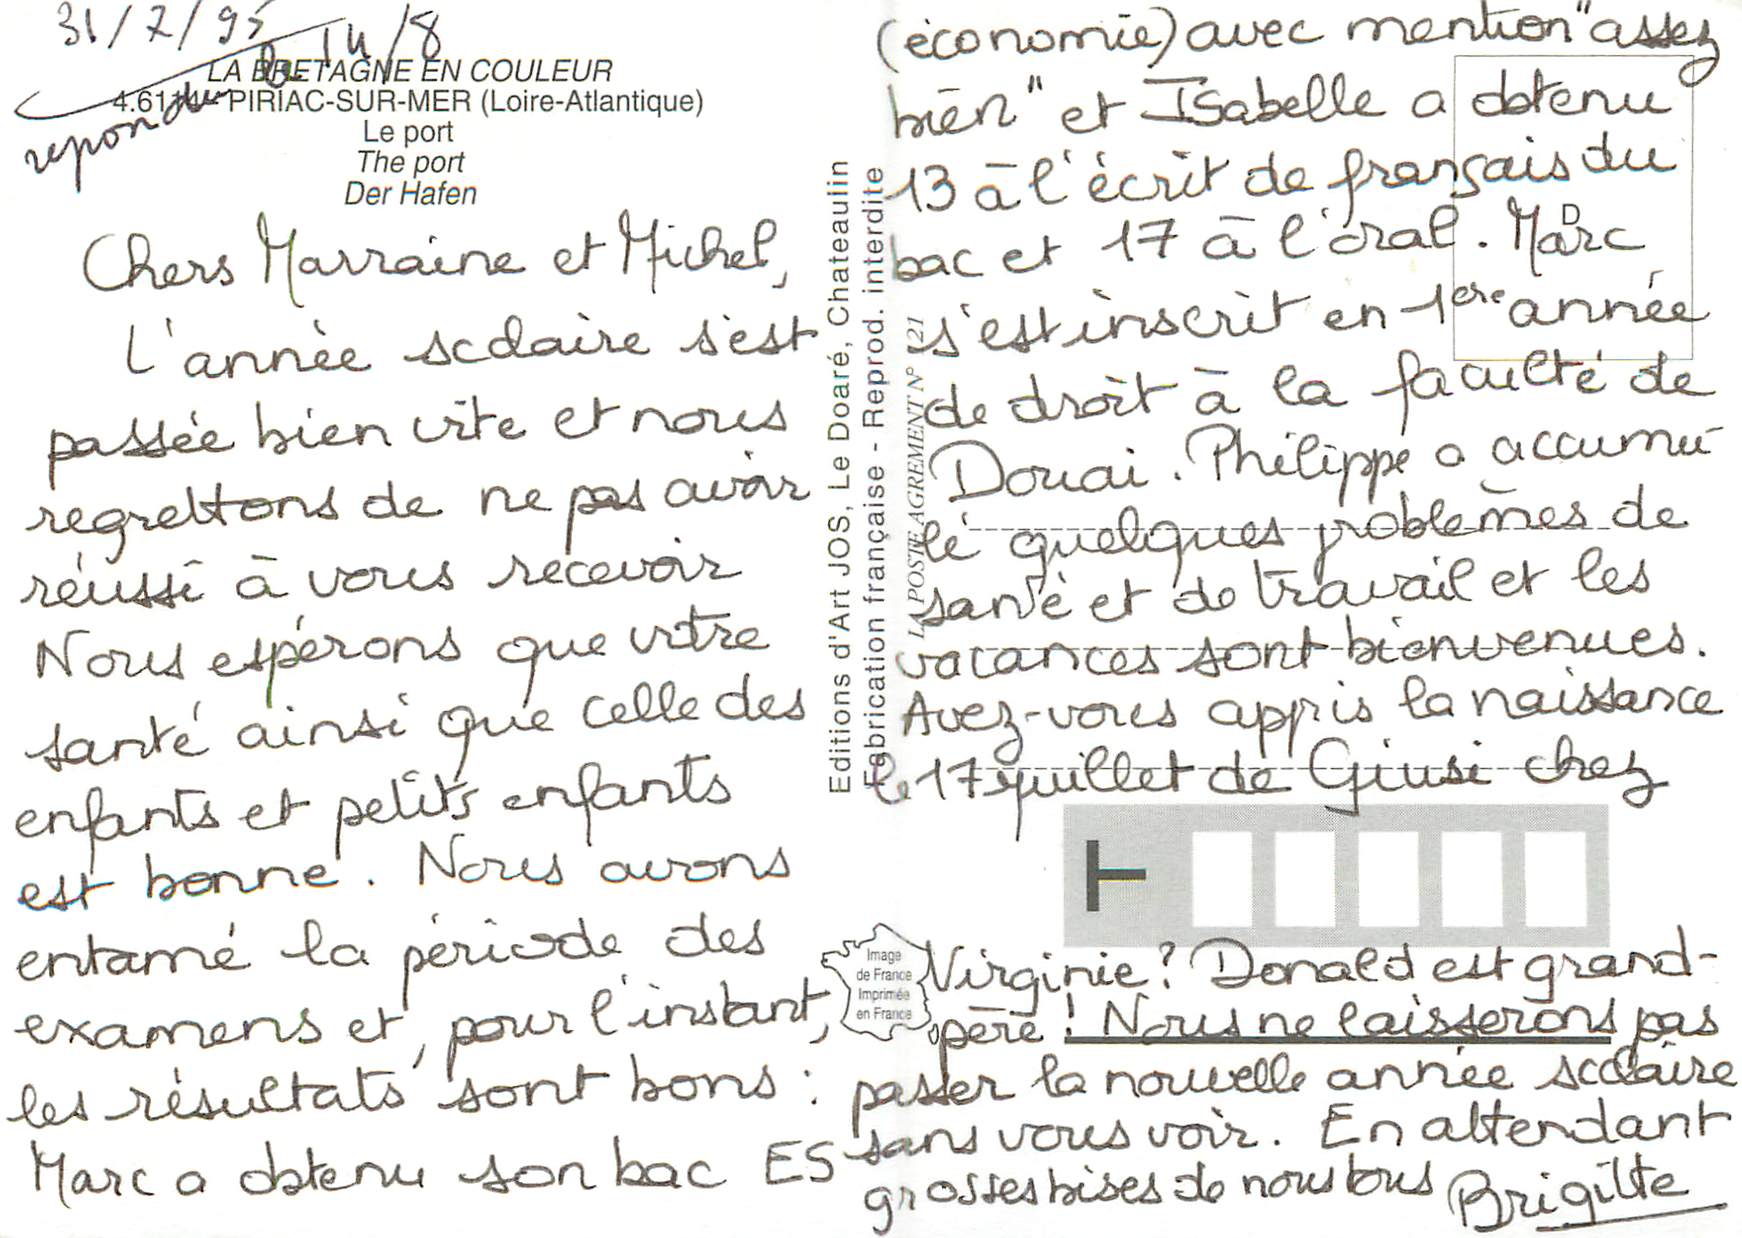 31/7/95
repondu le 14/8
LA BRETAGNE EN COULEUR
PIRIAC-SUR-MER (Loire-Atlantique)
Le port
The port
Der Hafen
Chers Marraine et Michel,
L'année scolaire s'est
passée bien vite et nous
regrettons de ne pas avoir
réussi à vous recevoir
Nous espérons que votre
santé ainsi que celle des
enfants et petits enfants
est bonne. Nous avons
entamé la période des
examens et, pour l'instant,
les résultats sont bons :
Marc a obtenu son bac ES
Editions d'Art JOS, Le Doaré, Chateaulin
Fabrication française - Reprod. interdite
LA POSTE AGREMENT N° 21
(économie) avec mention "assez
bien" et Isabelle a obtenu
13 à l'écrit de français du
bac et 17 à l'oral. Marc
D
s'est inscrit en 1ere année
de droit à la faculté de
Douai. Philippe a accumu
lé quelques problèmes de
santé et de travail et les
vacances sont bienvenues.
Avez-vous appris la naissance
le 17 juillet de Giusi chez
Image
de France
Imprimée
en France
Virginie? Donald est grand-
père! Nous ne laisserons pas
passer la nouvelle année scolaire
sans vous voir. En attendant
grosses bises de nous tous Brigitte